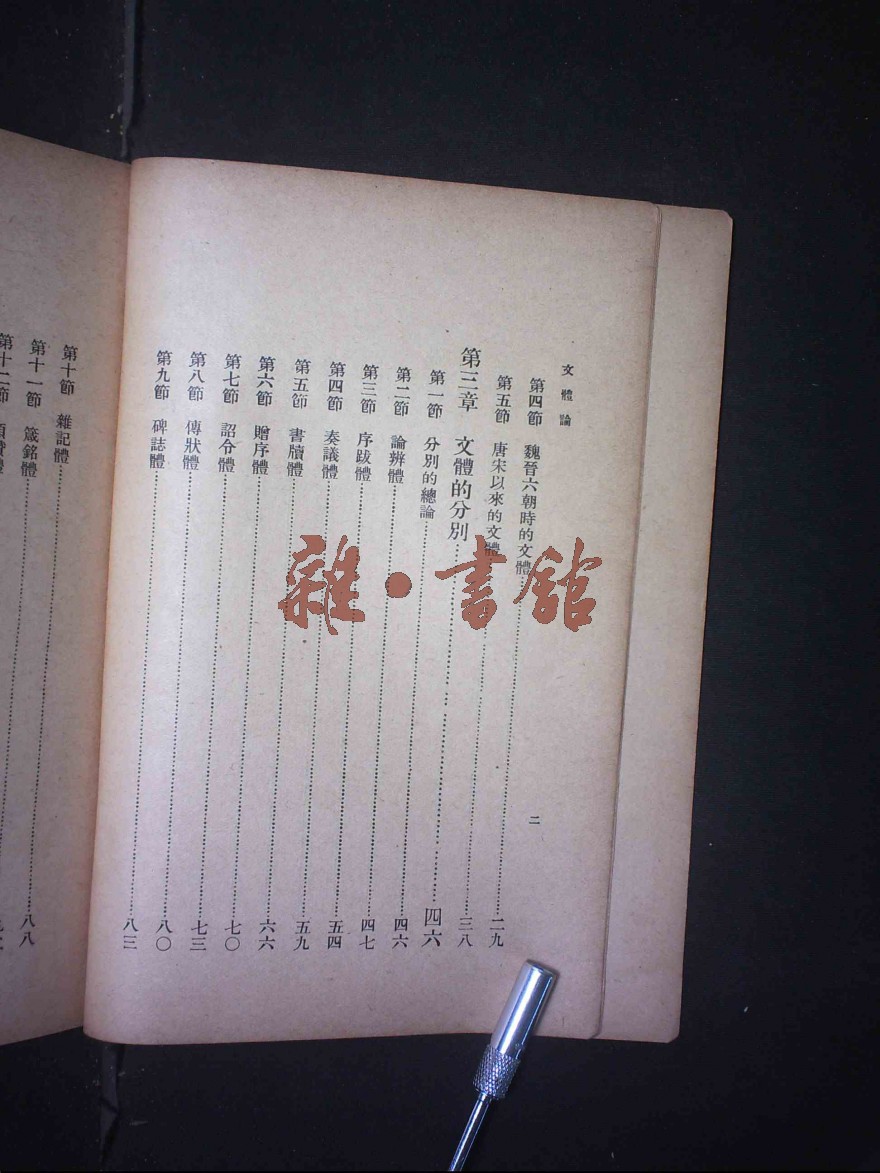 文體論
二
第四節 魏晉六朝時的文體……二九
第五節 唐宋以來的文體……三八
第三章 文體的分別……四六
第一節 分別的總論……四六
第二節 論辨體……四七
第三節 序跋體……五四
第四節 奏議體……五九
第五節 書牘體……六六
第六節 贈序體……七〇
第七節 詔令體……七三
第八節 傳狀體……八〇
第九節 碑誌體……八三
第十節 雜記體……八八
第十一節 箴銘體……
第十二節
雜·書館